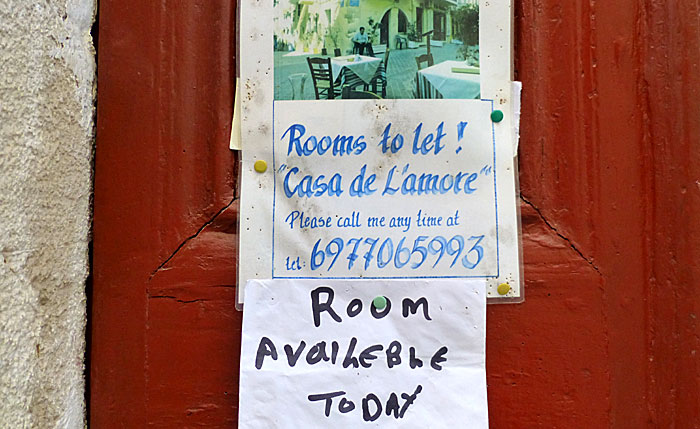 Rooms to let !
"Casa de L'amore"
Please call me any time at
tel: 6977065993
ROOM
AVAILEBLE
TODAY